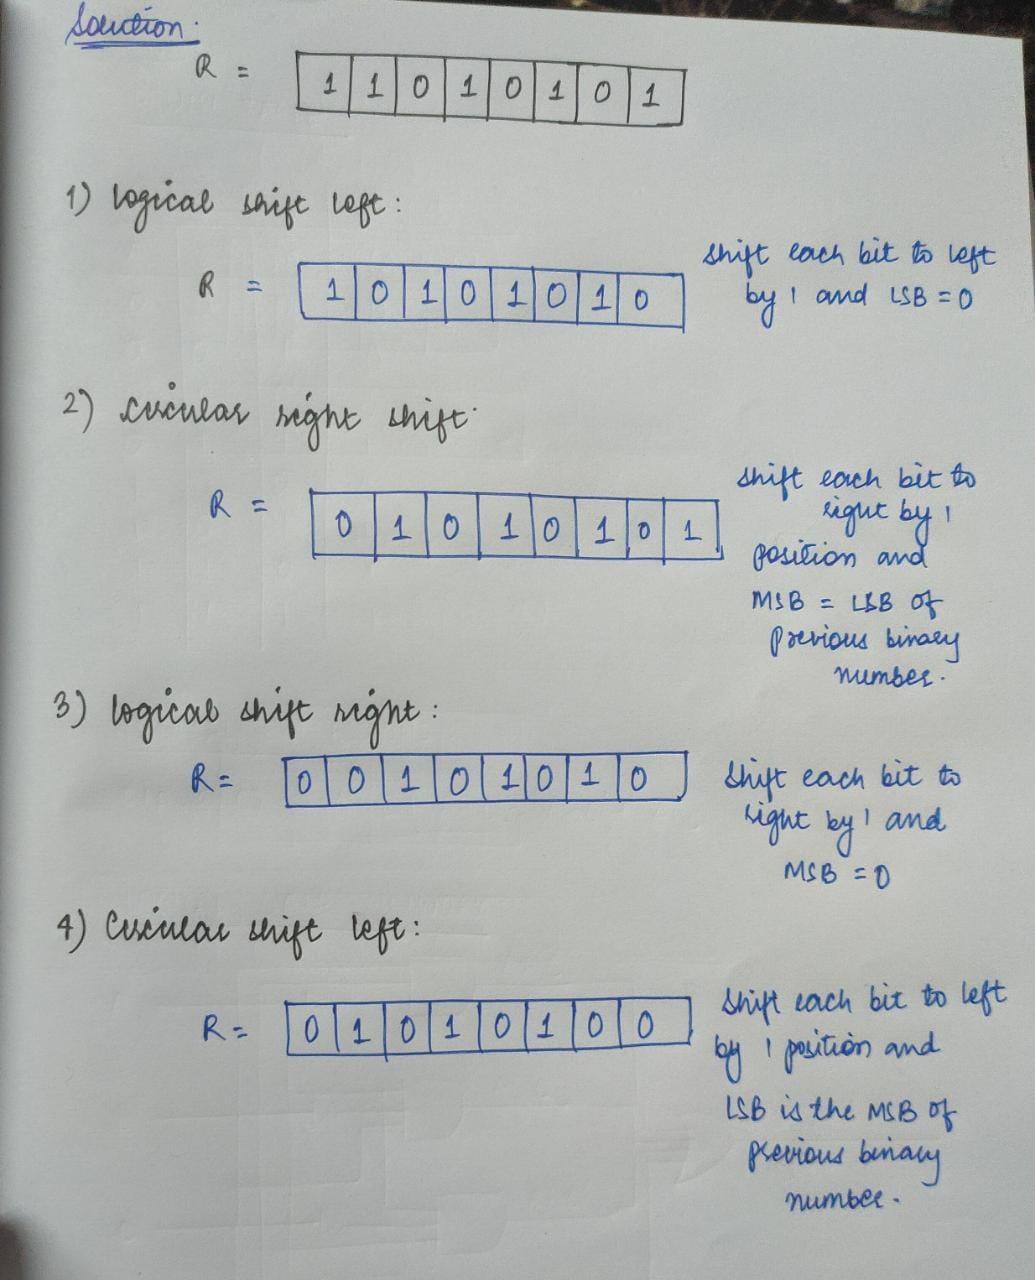 Solution:
R = 1 1 0 1 0 1 0 1
1) logical shift left:
R = 1 0 1 0 1 0 1 0
shift each bit to left
by 1 and LSB = 0
2) circular right shift
R = 0 1 0 1 0 1 0 1
shift each bit to
right by 1
position and
MSB = LSB of
previous binary
number.
3) logical shift right:
R = 0 0 1 0 1 0 1 0
shift each bit to
right by 1 and
MSB = 0
4) Circular shift left:
R = 0 1 0 1 0 1 0 0
shift each bit to left
by 1 position and
LSB is the MSB of
previous binary
number.